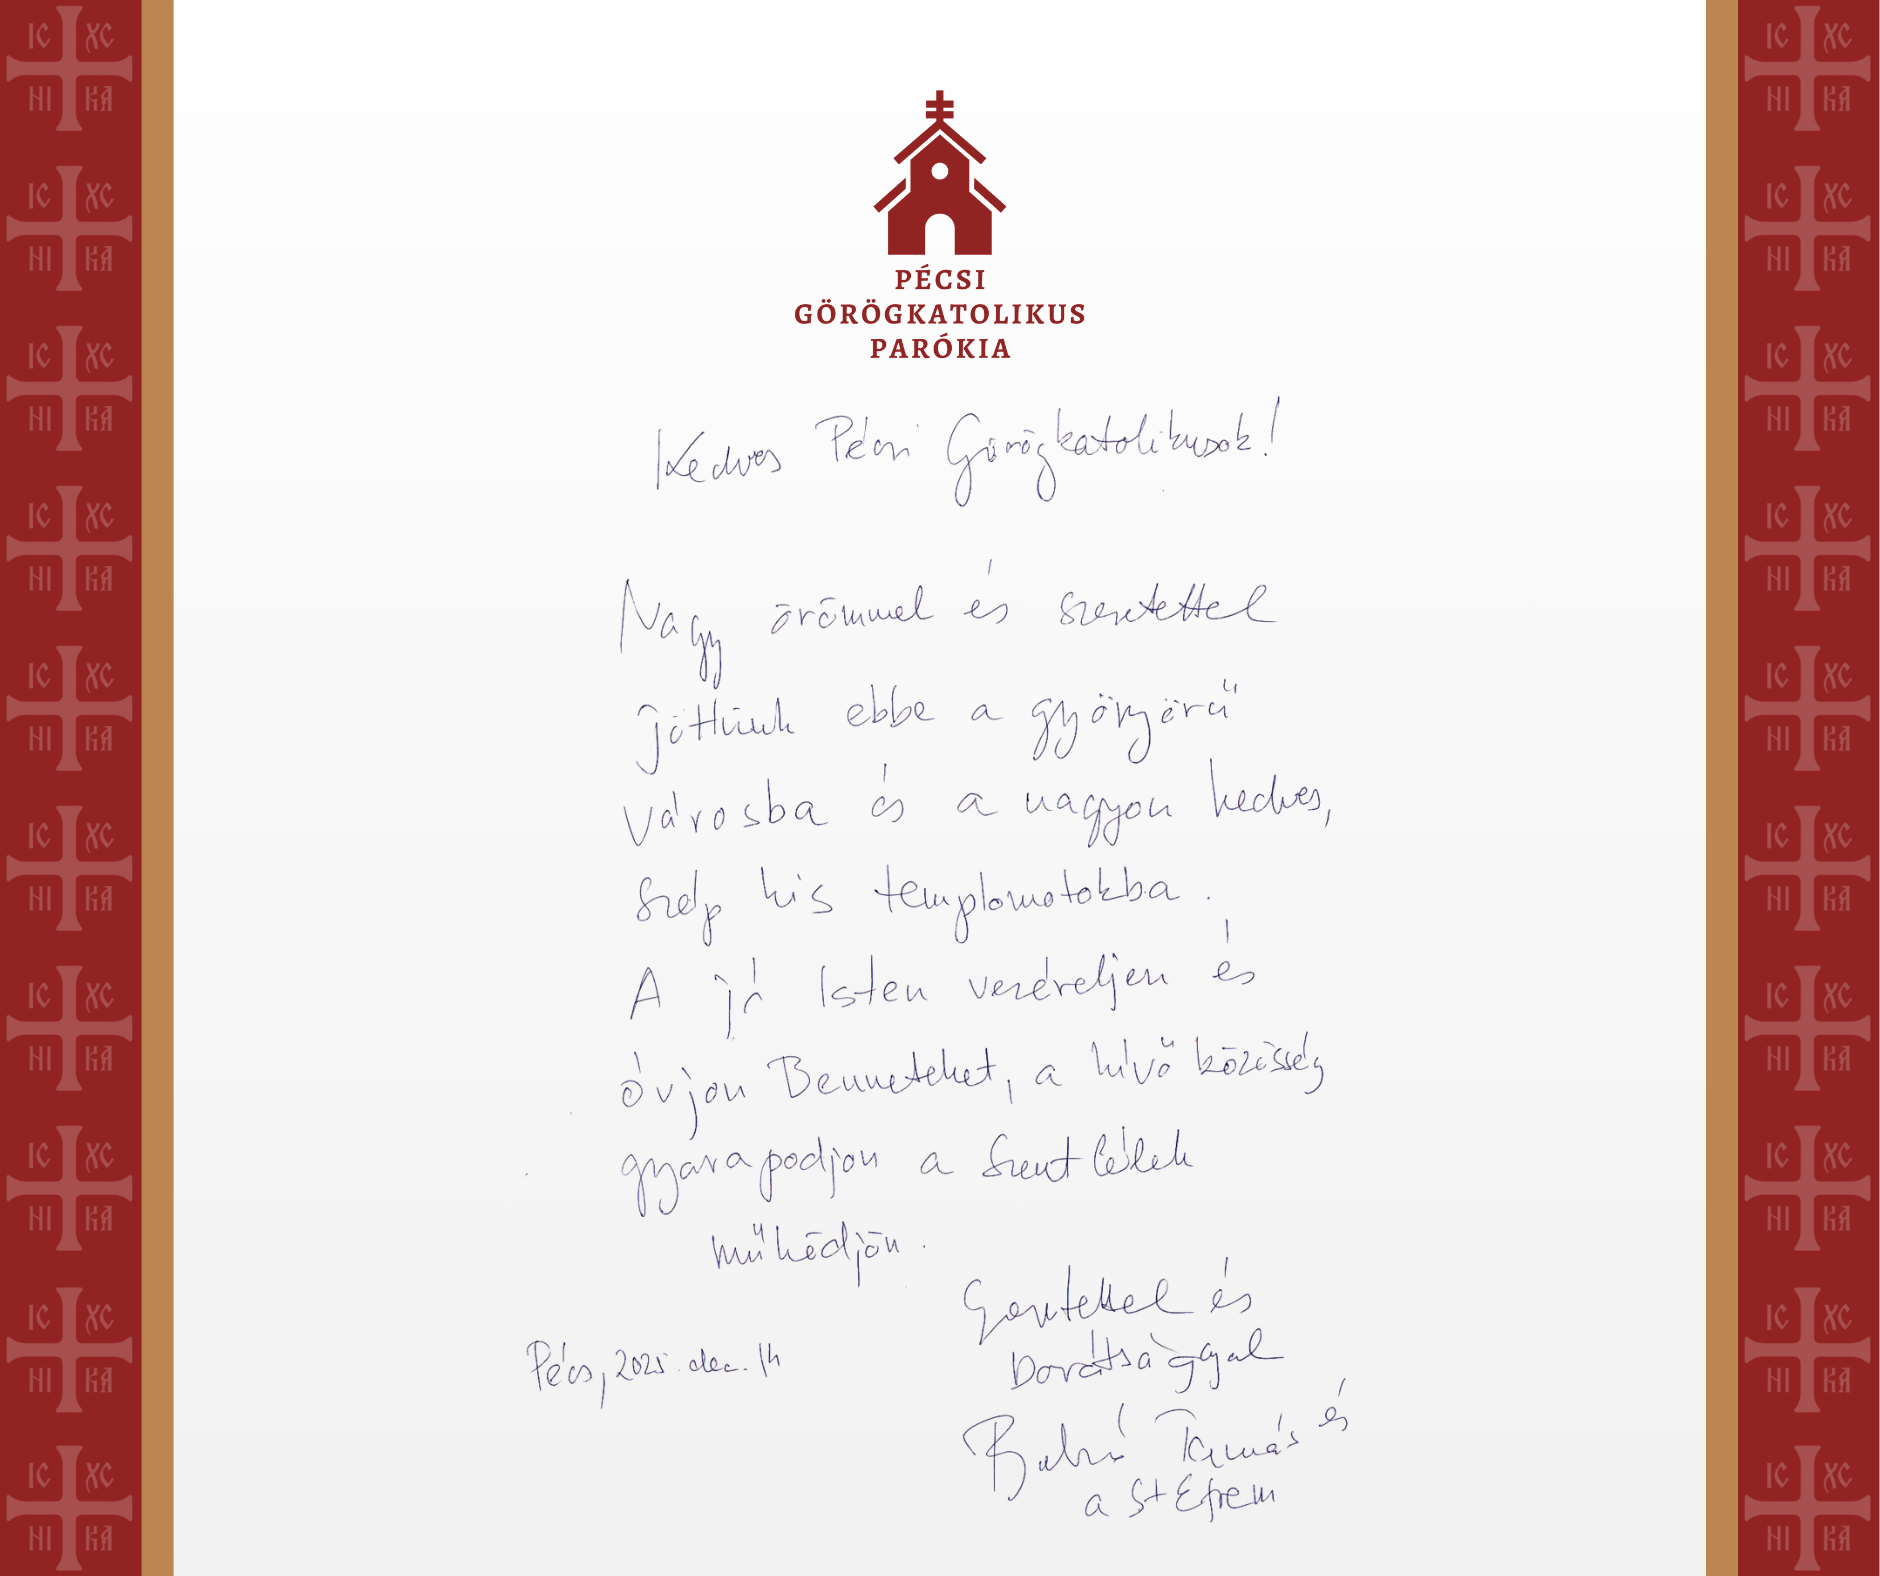 PÉCSI
GÖRÖGKATOLIKUS
PARÓKIA
Kedves Pécsi Görögkatolikusok!
Nagy örömmel és szeretettel
jöttünk ebbe a gyönyörű
városba és a nagyon kedves,
szép kis templomotokba.
A jó Isten vezéreljen és
óvjon Benneteket, a hívő közösség
gyarapodjon a Szentlélek
működjön.
Szeretettel és
barátsággal
Pécs, 2025. dec. 14
Bubnó Tamás és
a St Efrem
IC XC
NI KA